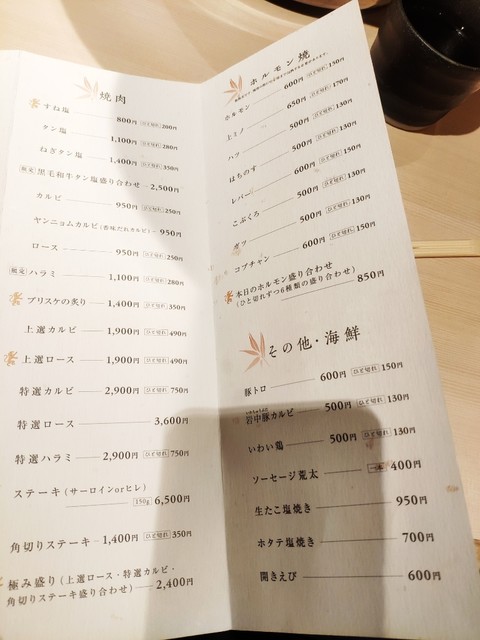 焼肉
すね塩 800円 ひと切れ 200円
タン塩 1,100円 ひと切れ 280円
ねぎタン塩 1,400円 ひと切れ 350円
限定 黒毛和牛タン塩盛り合わせ 2,500円
カルビ 950円 ひと切れ 250円
ヤンニョムカルビ(香味だれカルビ) 950円
ロース 950円 ひと切れ 250円
限定 ハラミ 1,100円 ひと切れ 280円
ブリスケの炙り 1,400円 ひと切れ 350円
上選カルビ 1,900円 ひと切れ 490円
上選ロース 1,900円 ひと切れ 490円
特選カルビ 2,900円 ひと切れ 750円
特選ロース 3,600円
特選ハラミ 2,900円 ひと切れ 750円
ステーキ(サーロインorヒレ)
150g 6,500円
角切りステーキ 1,400円 ひと切れ 350円
極み盛り(上選ロース・特選カルビ・
角切りステーキ盛り合わせ) 2,400円
ホルモン焼
ホルモン 600円 ひと切れ 150円
上ミノ 650円 ひと切れ 170円
ハツ 500円 ひと切れ 130円
はちのす 500円 ひと切れ 130円
レバー 600円 ひと切れ 150円
こぶくろ 500円 ひと切れ 130円
ガツ 500円 ひと切れ 130円
コプチャン 600円 ひと切れ 150円
本日のホルモン盛り合わせ
(ひと切れずつ6種類の盛り合わせ) 850円
その他・海鮮
豚トロ 600円 ひと切れ 150円
岩中豚カルビ 500円 ひと切れ 130円
いわい鶏 500円 ひと切れ 130円
ソーセージ荒太 一本 400円
生たこ塩焼き 950円
ホタテ塩焼き 700円
開きえび 600円